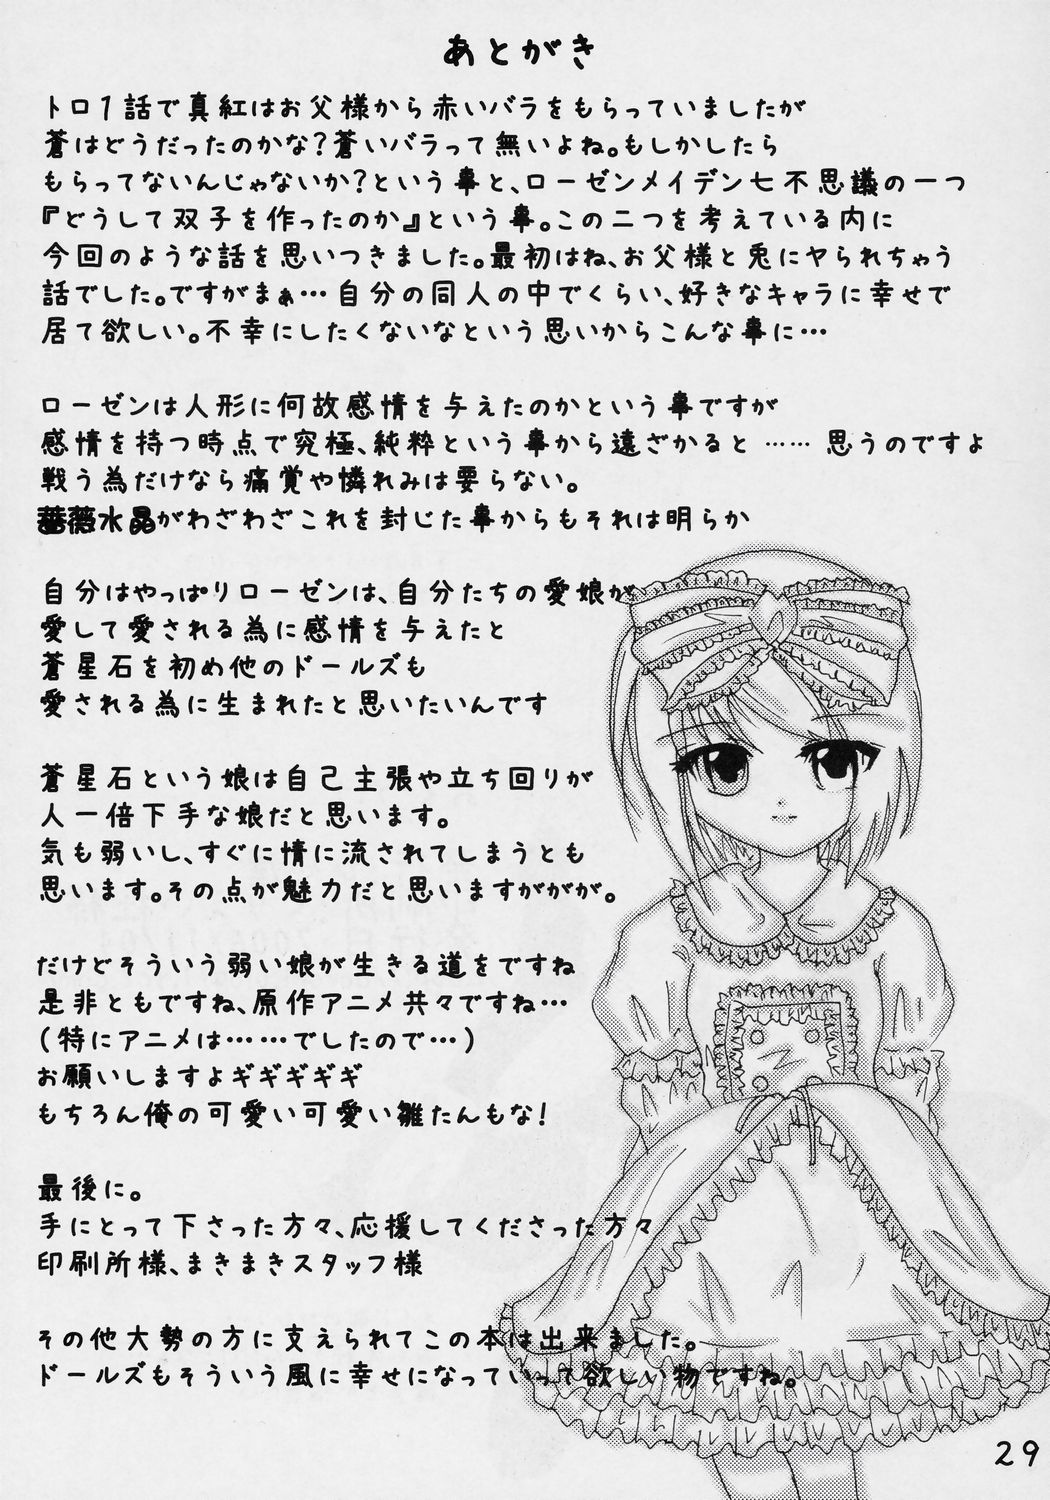 あとがき
トロ1話で真紅はお父様から赤いバラをもらっていましたが
蒼はどうだったのかな?蒼いバラって無いよね。もしかしたら
もらってないんじゃないか?という事と、ローゼンメイデン七不思議の一つ
『どうして双子を作ったのか』という事。この二つを考えている内に
今回のような話を思いつきました。最初はね、お父様と兎にヤられちゃう
話でした。ですがまぁ…自分の同人の中でくらい、好きなキャラに幸せで
居て欲しい。不幸にしたくないなという思いからこんな事に…
ローゼンは人形に何故感情を与えたのかという事ですが
感情を持つ時点で究極、純粋という事から遠ざかると……思うのですよ
戦う為だけなら痛覚や憐れみは要らない。
薔薇水晶がわざわざこれを封じた事からもそれは明らか
自分はやっぱりローゼンは、自分たちの愛娘が
愛して愛される為に感情を与えたと
蒼星石を初め他のドールズも
愛される為に生まれたと思いたいんです
蒼星石という娘は自己主張や立ち回りが
人一倍下手な娘だと思います。
気も弱いし、すぐに情に流されてしまうとも
思います。その点が魅力だと思いますががが。
だけどそういう弱い娘が生きる道をですね
是非ともですね、原作アニメ共々ですね…
(特にアニメは……でしたので…)
お願いしますよギギギギギ
もちろん俺の可愛い可愛い雛たんもな!
最後に。
手にとって下さった方々、応援してくださった方々
印刷所様、まきまきスタッフ様
その他大勢の方に支えられてこの本は出来ました。
ドールズもそういう風に幸せになっていって欲しい物ですね。
29